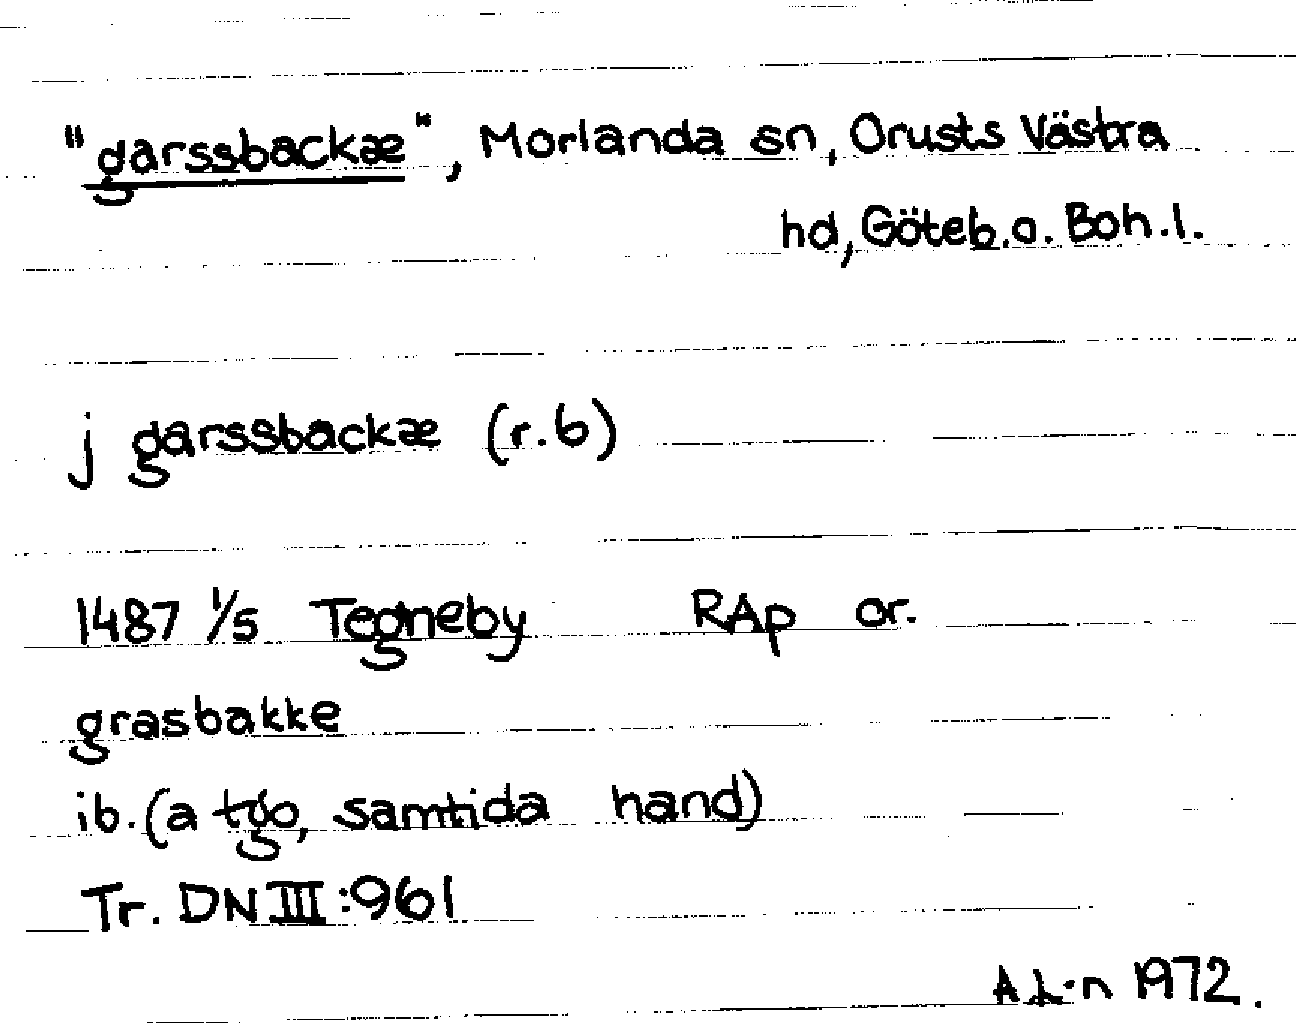 "garssbackæ", Morlanda sn, Orusts Västra
hd, Göteb.o. Boh.l.
j garssbackæ (r.6)
1487 1/5 Tegneby RAp or.
grasbakke
ib. (a tgo, samtida hand)
Tr. DN III:961
A L-n 1972.